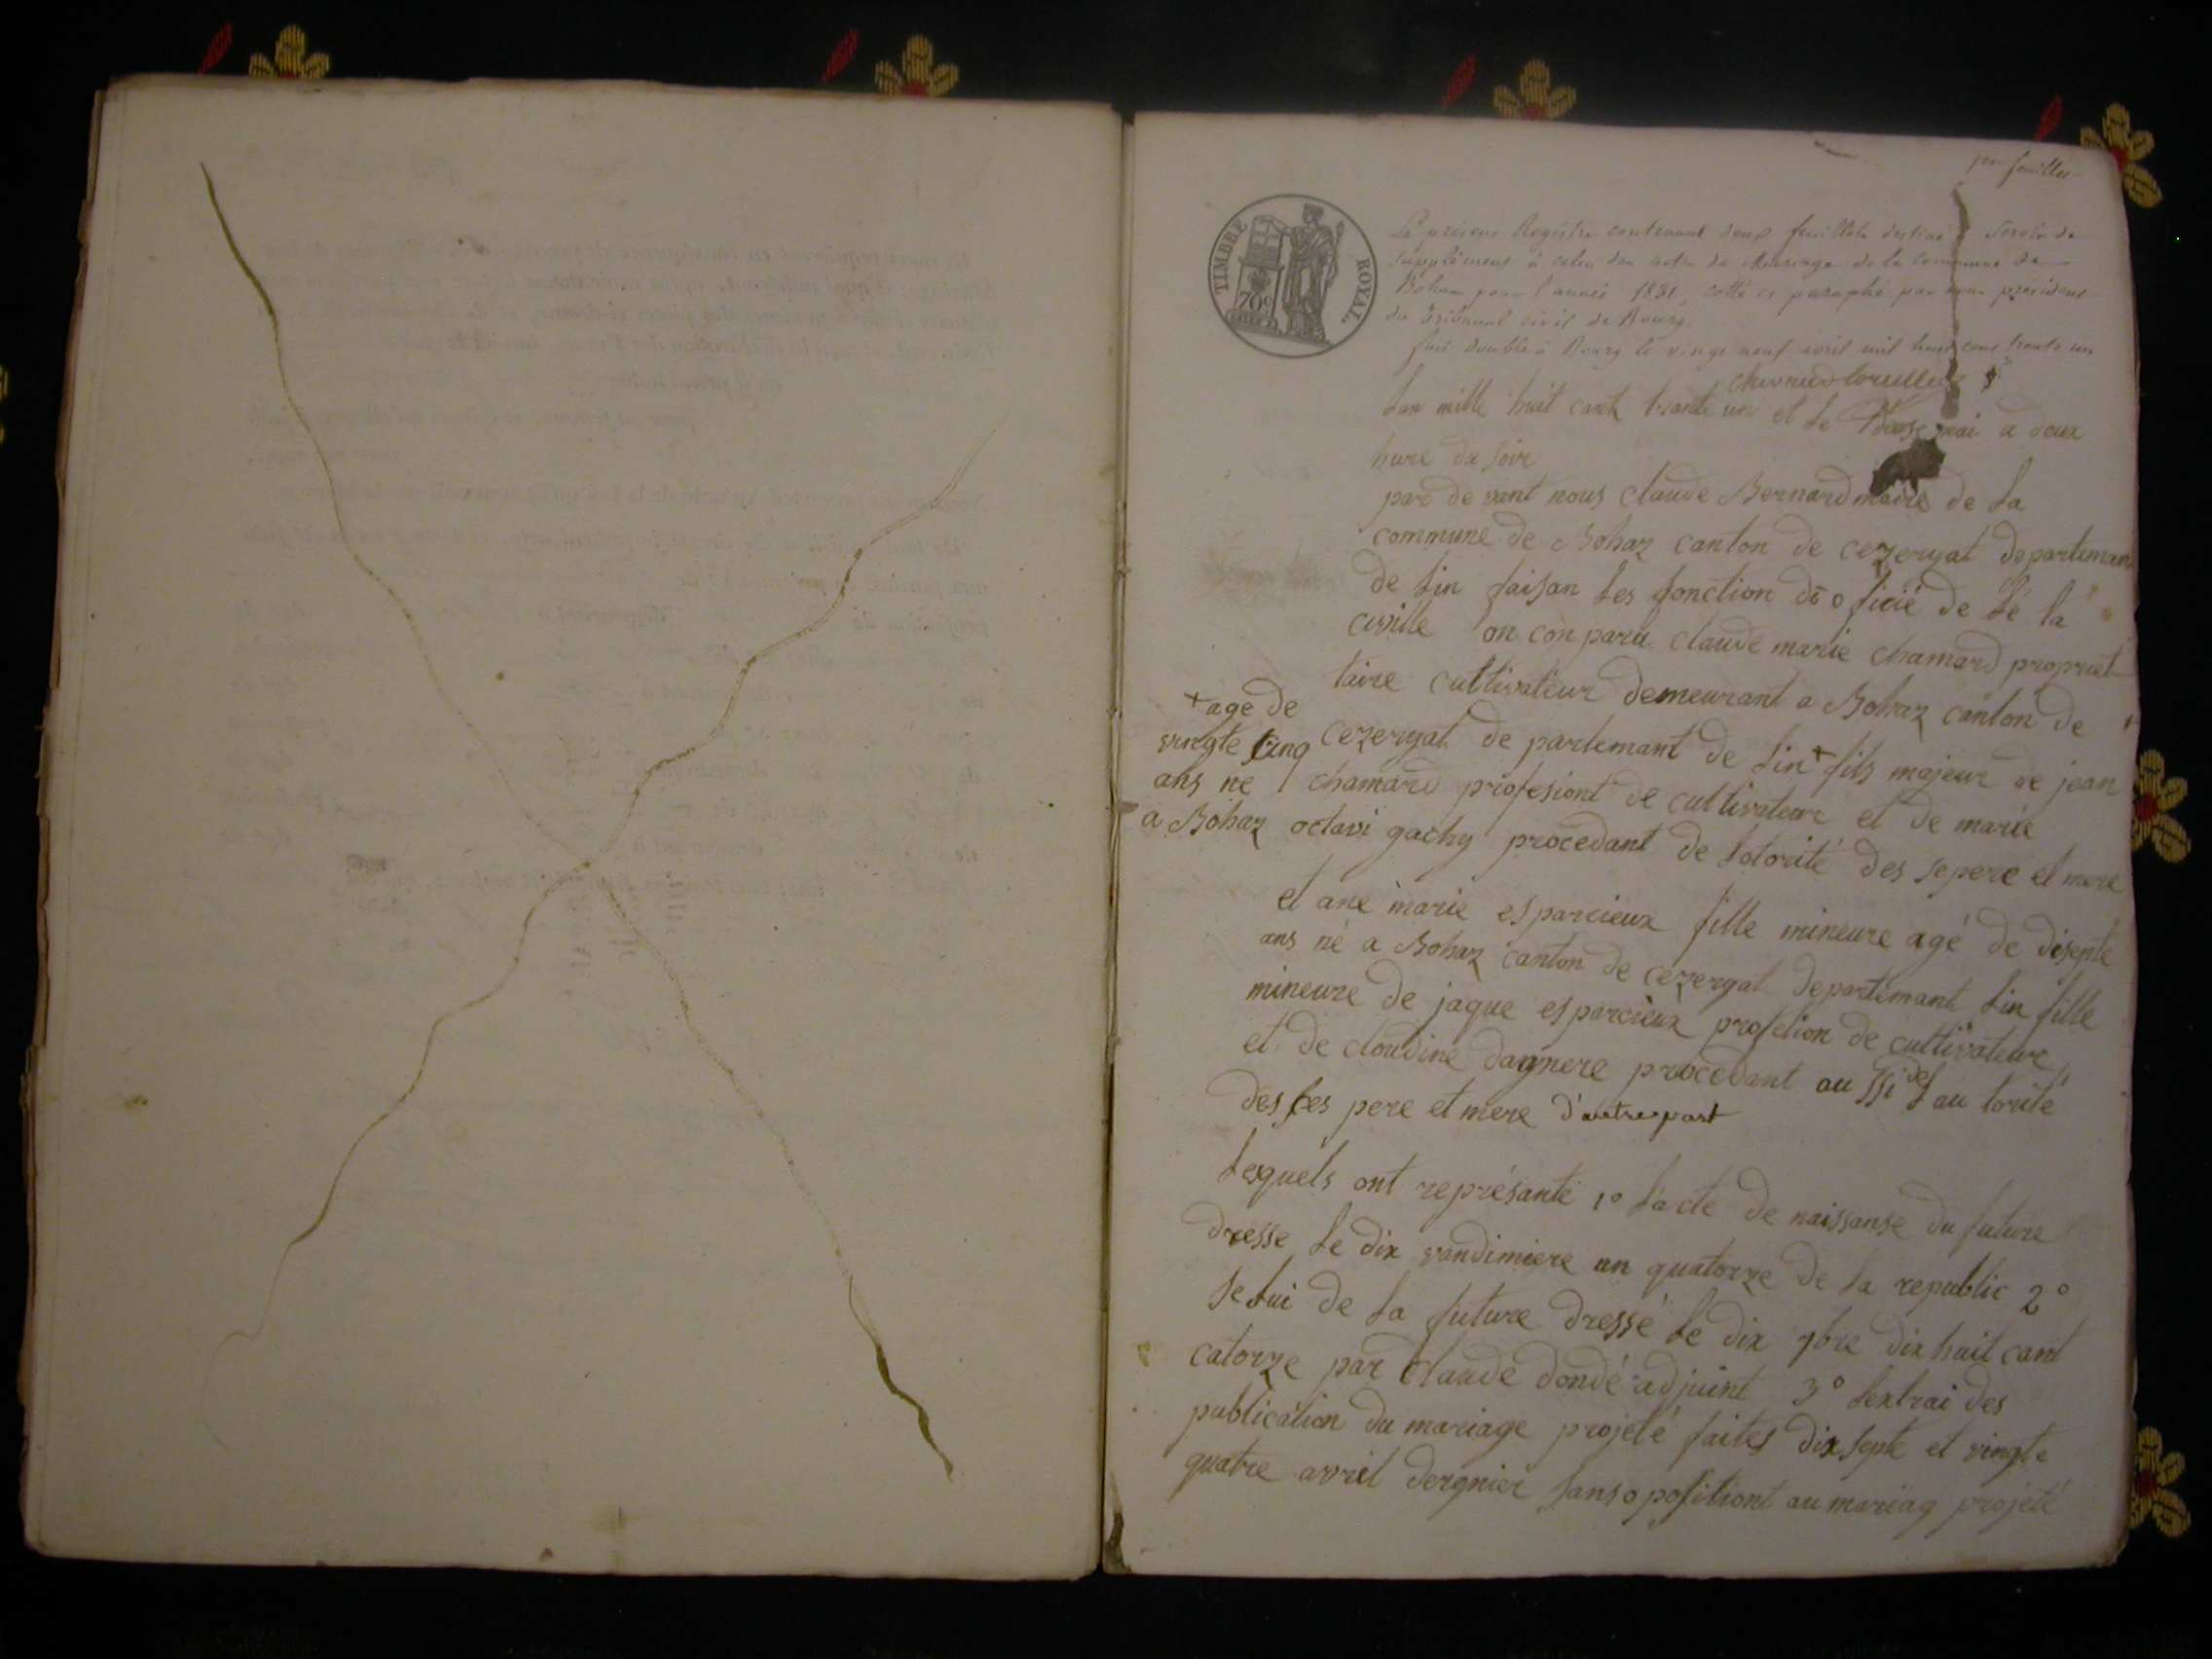 1er feuillet
TIMBRE ROYAL
70c
Le présent Registre contenant deux feuillets destiné à servir de
supplément à celui des actes de Mariage de la commune de
Bohan pour l'année 1831, cotté et paraphé par nous président
du Tribunal civil de Bourg.
fait double à Bourg le vingt neuf avril mil huit cent trente un
Lan mille huit cant trante un et le mai a deux
hure du soir
par de vant nous claude Bernard maire de la
commune de Bohaz canton de cezeryat departeman
de Lin faisan les fonction de oficié de lé la
civille on con paru claude marie chamard propriet
taire cultivateur demeurant a Bohaz canton de
cezeryat de partemant de Lin + fils majeur de jean
+ age de
vingte cinq
ans ne
a Bohaz
chamard profesiont de cultivateur et de marie
octavi gachy procedant de lotorité des se pere et mere
et ane marie esparcieux fille mineure agé de disepte
ans né a Bohaz canton de cezeryat departemant Lin fille
mineure de jaque esparcieux profetion de cultivateur
et de cloudine dagnere procedant au ssi de l au torité
des ses pere et mere d'autre part
Lesquels ont représanté 1° Lacte de naissanse du future
dresse le dix vandimiere an quatorze de la republic 2°
se lui de la future dressé le dix 7bre dix huit cant
catorze par Claude dondé adjuint 3° Lextrai des
publication du mariage projeté faites dix septe et vingte
quatre avril dergnier sans o positiont au mariag projeté